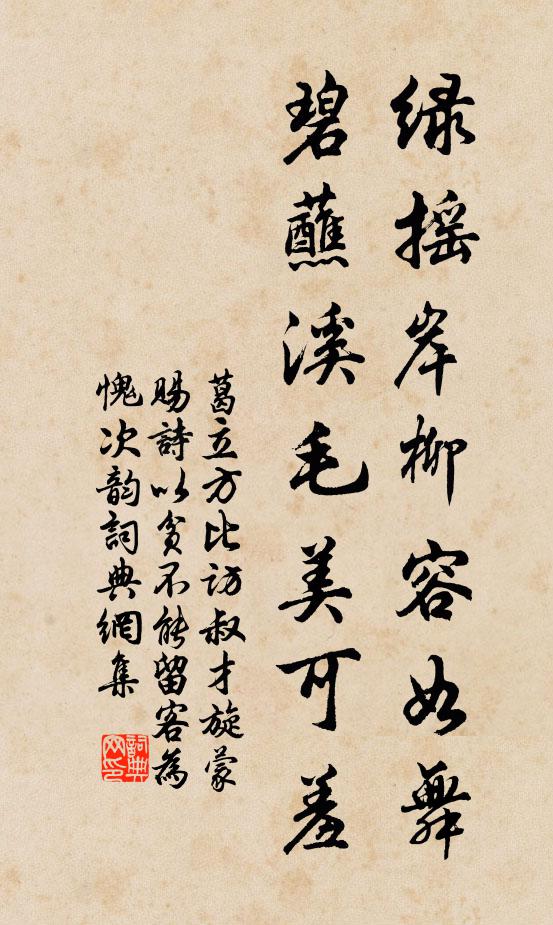 绿摇岸柳容如舞
碧蘸溪毛美可羞
葛立方比访叔才旋蒙
賜詩以貧不能留客為
愧次韵詞典網集
詞典
网印